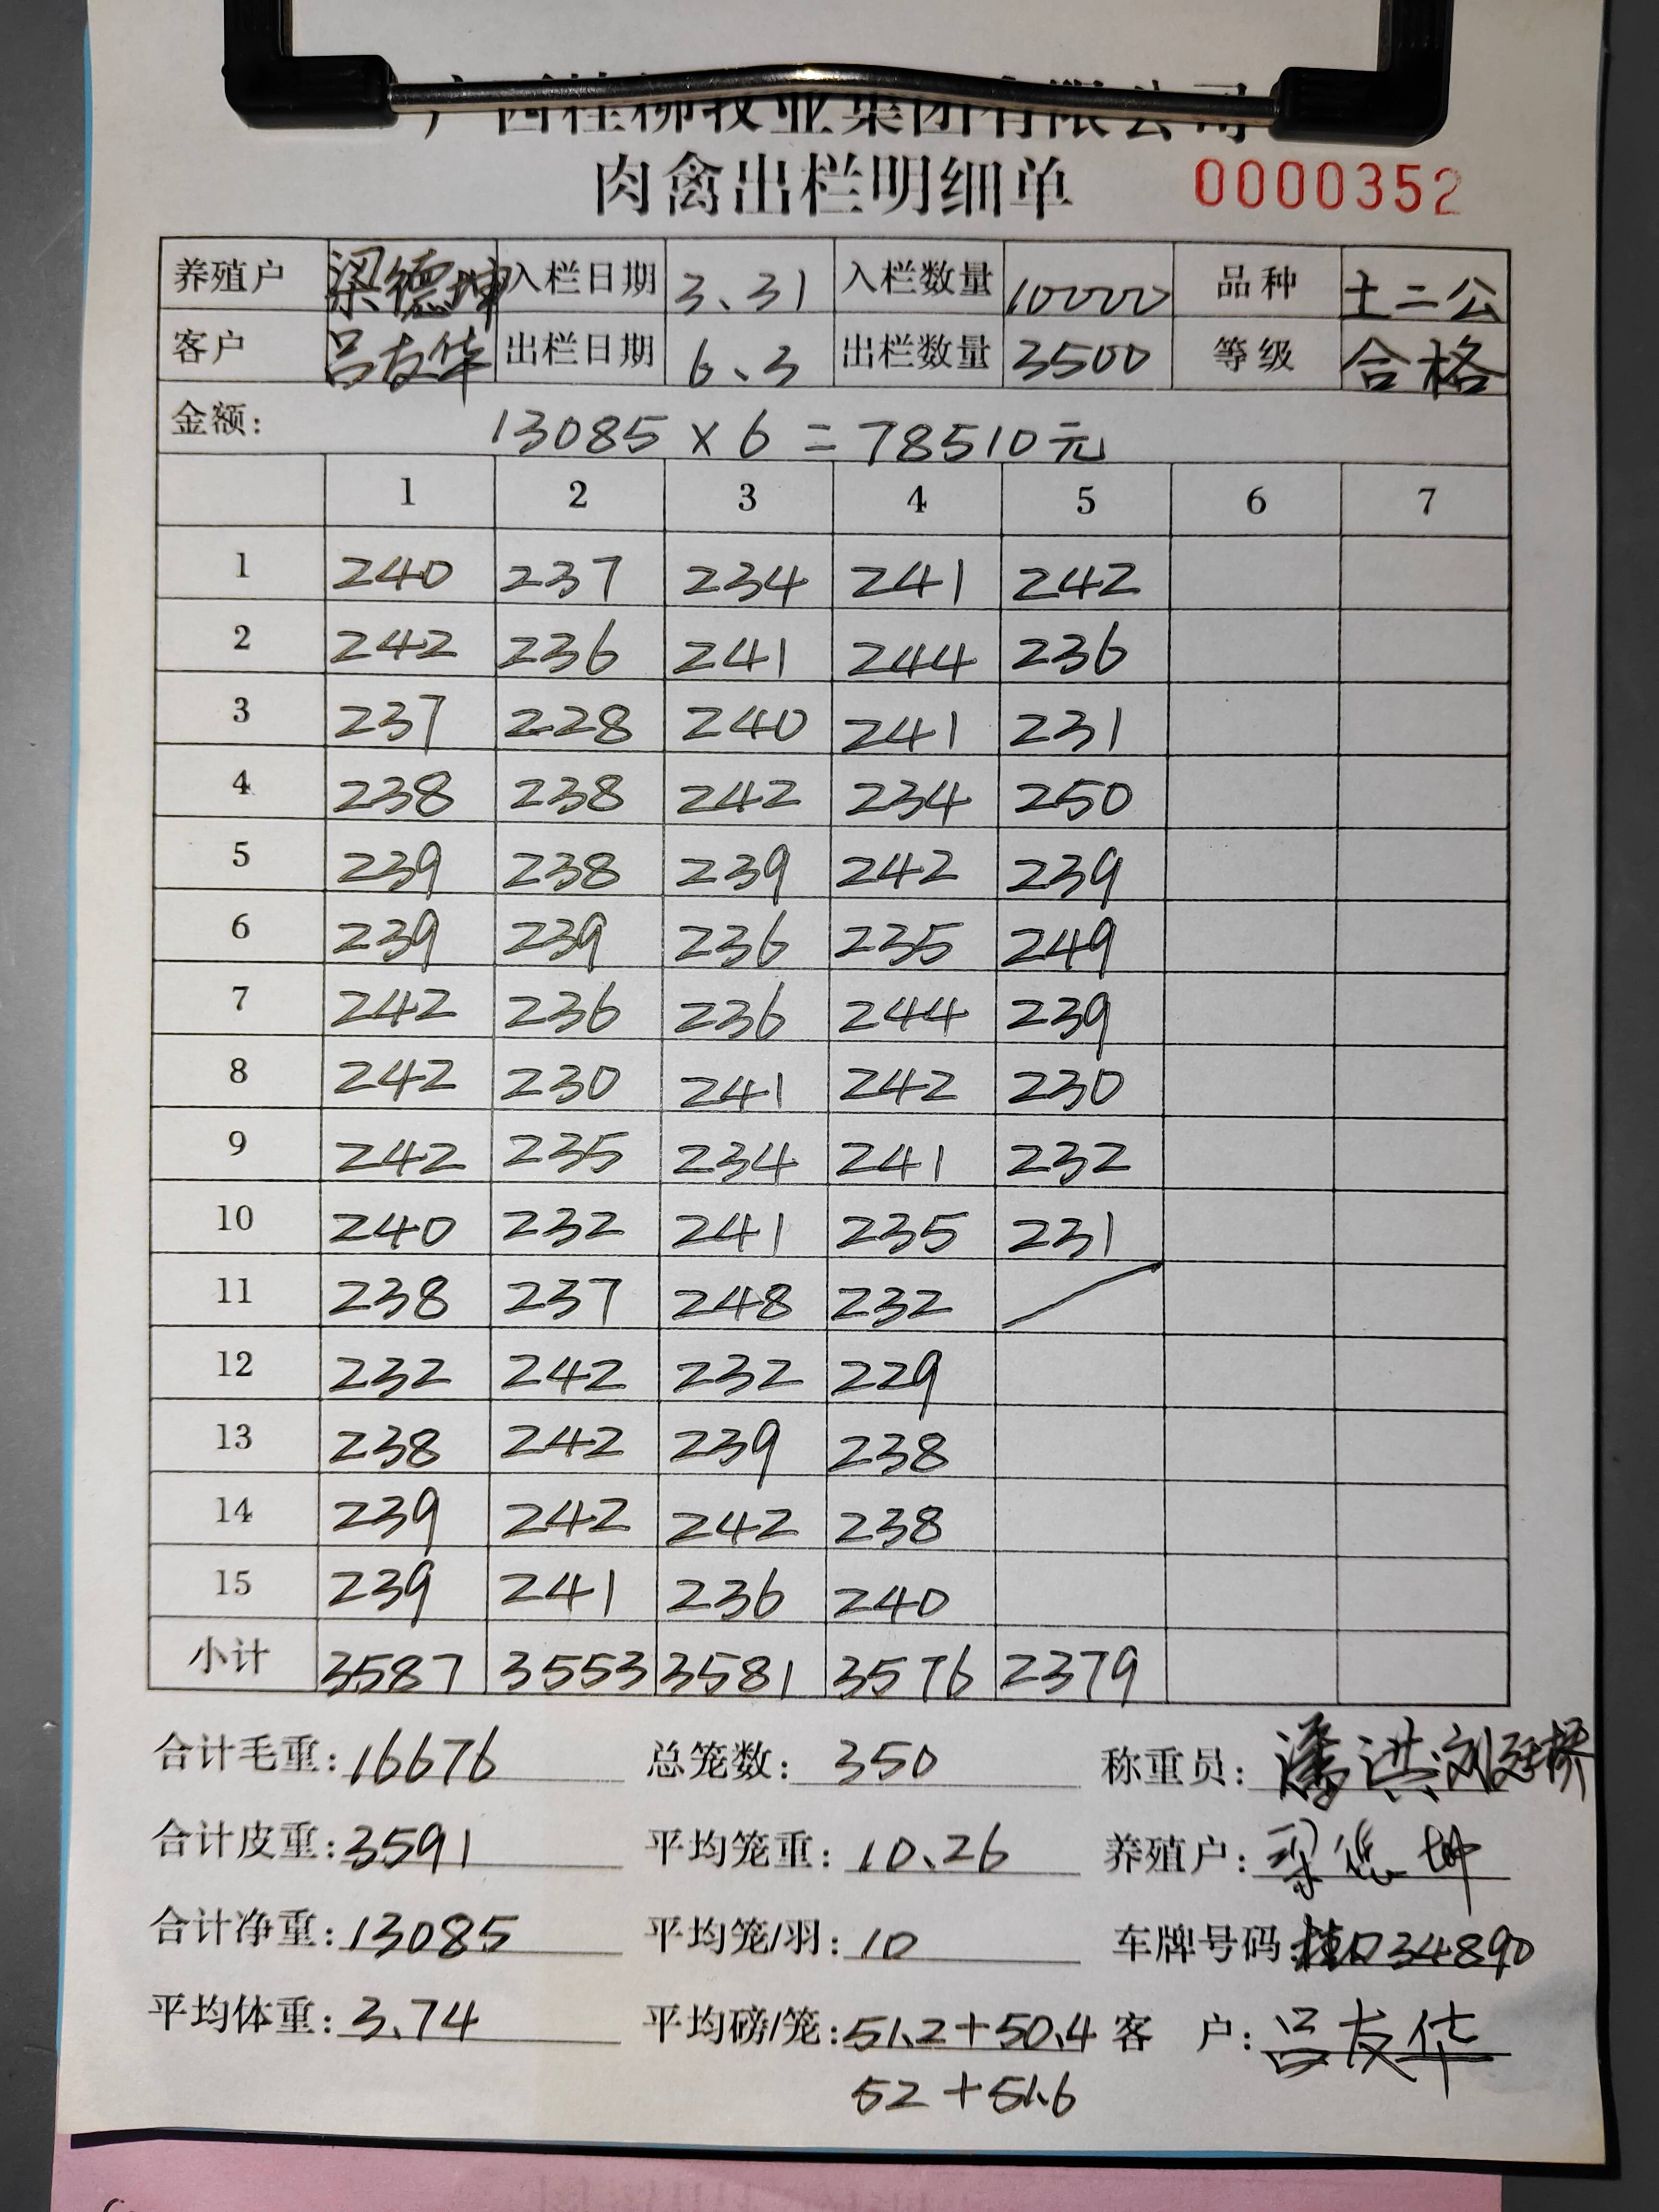 广西桂柳牧业集团有限公司
肉禽出栏明细单 0000352
养殖户 梁德坤 入栏日期 3、31 入栏数量 10000 品种 土二公
客户 吕友华 出栏日期 6、3 出栏数量 3500 等级 合格
金额: 13085 × 6 = 78510元
1 2 3 4 5 6 7
1 240 237 234 241 242
2 242 236 241 244 236
3 237 228 240 241 231
4 238 238 242 234 250
5 239 238 239 242 239
6 239 239 236 235 249
7 242 236 236 244 239
8 242 230 241 242 230
9 242 235 234 241 232
10 240 232 241 235 231
11 238 237 248 232
12 232 242 232 229
13 238 242 239 238
14 239 242 242 238
15 239 241 236 240
小计 3587 3553 3581 3576 2379
合计毛重: 16676 总笼数: 350 称重员: 潘洪
合计皮重: 3591 平均笼重: 10、26 养殖户: 梁德坤
合计净重: 13085 平均笼/羽: 10 车牌号码: 34890
平均体重: 3、74 平均磅/笼: 51.2+50.4 客 户: 吕友华
52+51.6